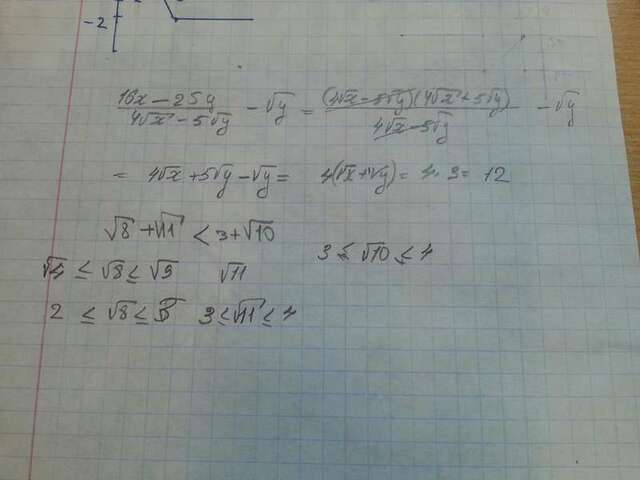 -2
(16x - 25y)/(4√x - 5√y) - √y = (4√x - 5√y)(4√x + 5√y)/(4√x - 5√y) - √y
= 4√x + 5√y - √y = 4(√x + √y) = 4 · 3 = 12
√8 + √11 < 3 + √10
3 ≤ √10 ≤ 4
√4 ≤ √8 ≤ √9 √11
2 ≤ √8 ≤ 3 3 ≤ √11 ≤ 4